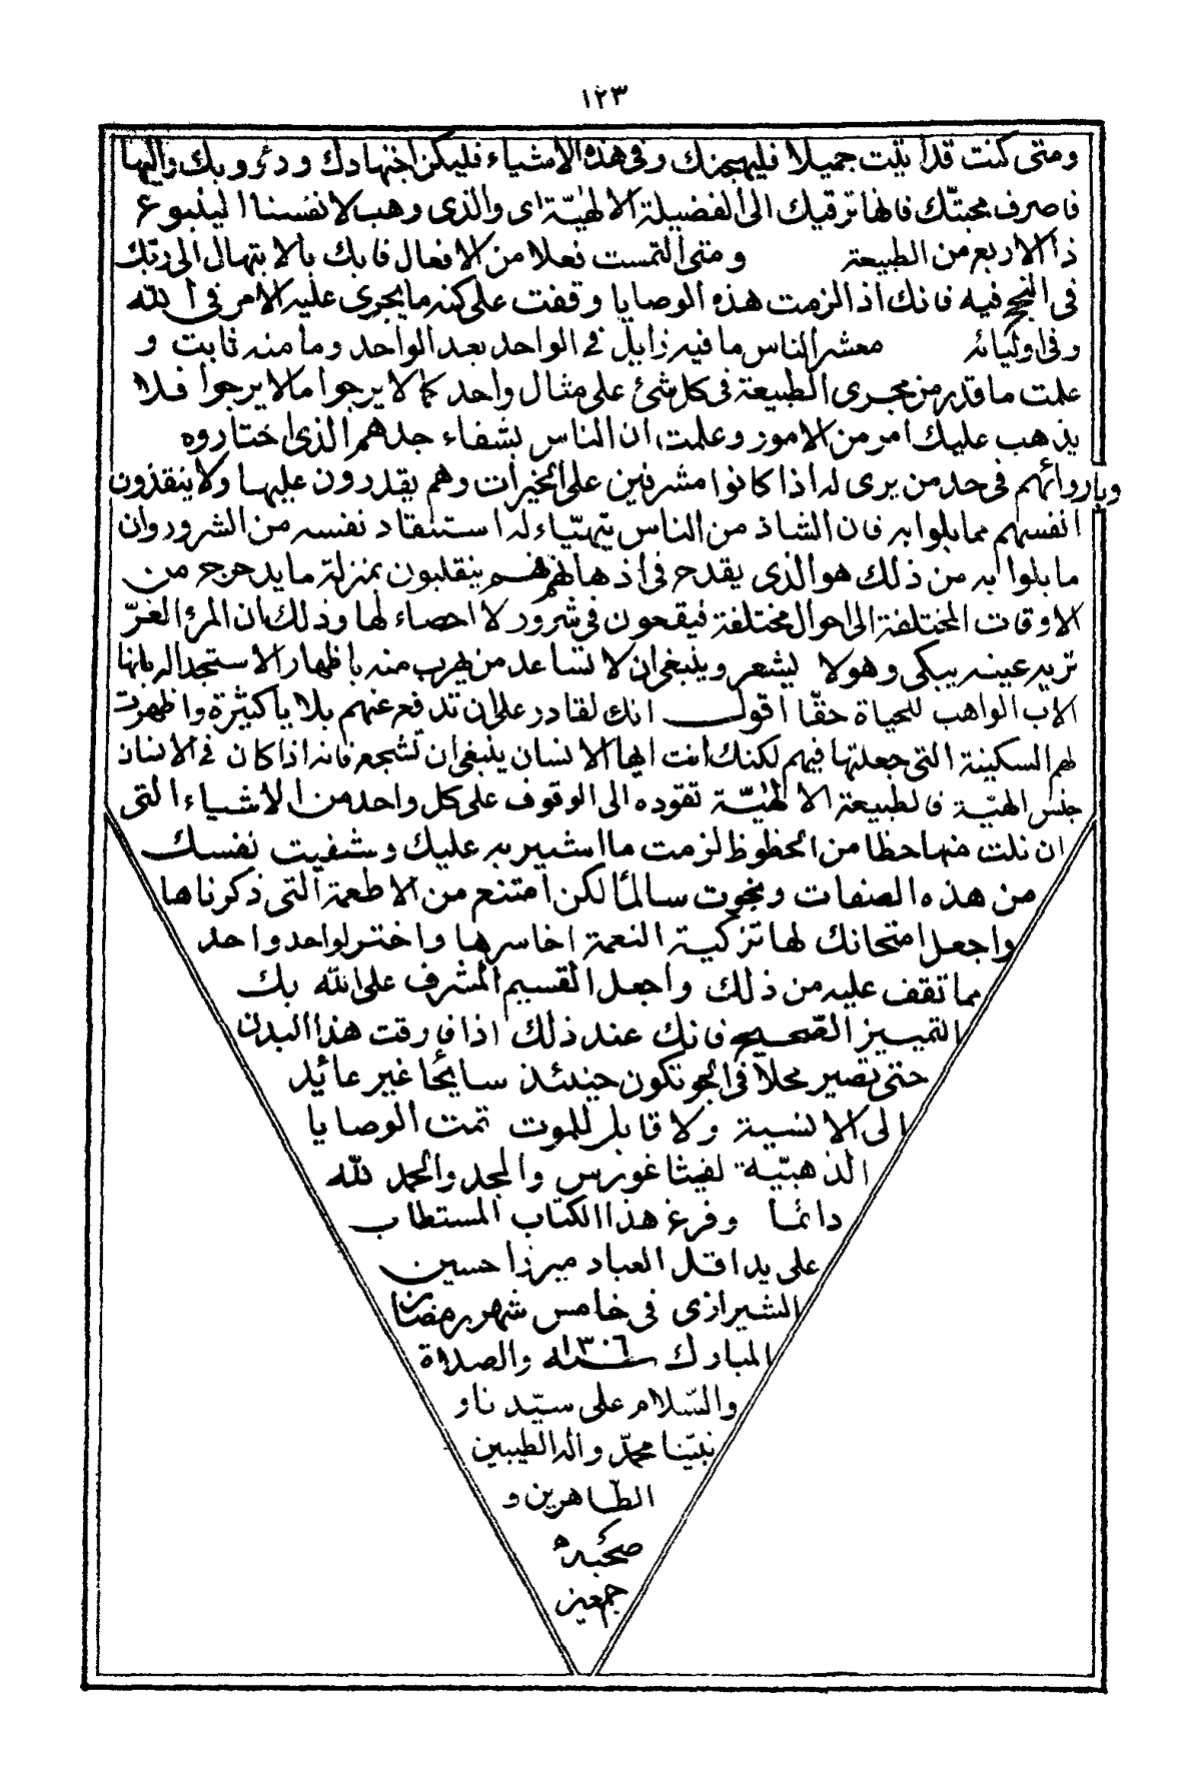 ١٢٣
ومتى كنت قد اتيت جميلا فليبهجنك وفى هذه الاشياء فليكن اجتهادك ودؤوبك واليها
فاصرف محبتّك فانها ترقيك الى الفضيلة الالهيّة اى والذى وهب لانفسنا الينبوع
ذا الاربع من الطبيعة ومتى التمست فعلا من الافعال فابك بالابتهال الى ربّك
فى النجح فيه فانك اذ الزمت هذه الوصايا وقفت على كنه ما يجرى عليه الامر فى الله
وفى اوليائه معشر الناس ما فيه زايل فى الواحد بعد الواحد وما منه ثابت و
علمت ما قدر من مجرى الطبيعة فى كل شئ على مثال واحد كما لا يرجوا ما لا يرجوا فلا
يذهب عليك امر من الامور وعلمت ان الناس بشفاء جدهم الذى اختاروه
وباروائهم فى حد من يرى له اذا كانوا مشرفين على الخيرات وهم يقدرون عليها ولا ينقذون
انفسهم مما بلوا به فان الشاذ من الناس يتهيّاء له استنقاد نفسه من الشرور وان
ما بلوا به من ذلك هو الذى يقدح فى اذهانهم فهم ينقلبون بمنزلة ما يدحرج من
الاوقات المختلفة الى احوال مختلفة فيقحون فى شرور لا احصاء لها وذلك ان المرء الغرّ
تريه عينه يبكى وهو لا يشعر وينبغى ان لا تساعد من يهرب منه باظهار الاستجداله بانها
الاب الواهب للحياة حقّا اقول انك لقادر على ان تدفع عنهم بلايا كثيرة واظهرت
لهم السكينة التى جعلتها فيهم لكنك انت ايها الانسان ينبغى ان تشجع فانه اذا كان فى الانسان
جنس الهيّة فالطبيعة الالهٰيّة تقوده الى الوقوف على كل واحد من الاشياء التى
ان نلت منها حظا من الحظوظ لزمت ما اشير به عليك وشفيت نفسك
من هذه الصفات ونجوت سالمًا لكن امتنع من الاطعمة التى ذكرناها
واجعل امتحانك لها تزكية النعمة اخاسرها واختر لواحد واحد
مما تقف عليه من ذلك واجعل القسيم المشرف على الله بك
التمييز الصّحيح فانك عند ذلك اذا فارقت هذا البدن
حتى تصير محلا فى الجو تكون حينئذ سايحًا غير عائد
الى الانسية ولا قابل للموت تمت الوصايا
الذهبيّة لفيثاغورس والمجد والحمد لله
دائمًا وفرغ هذا الكتاب المستطاب
على يد اقل العباد ميرزا حسين
الشيرازى فى خامس شهر رمضان
المبارك سنه ١٣٠٦ والصلاة
والسّلام على سيّدنا و
نبيّنا محمّد واله الطيبين
الطّاهرين و
صحبه
جمعين